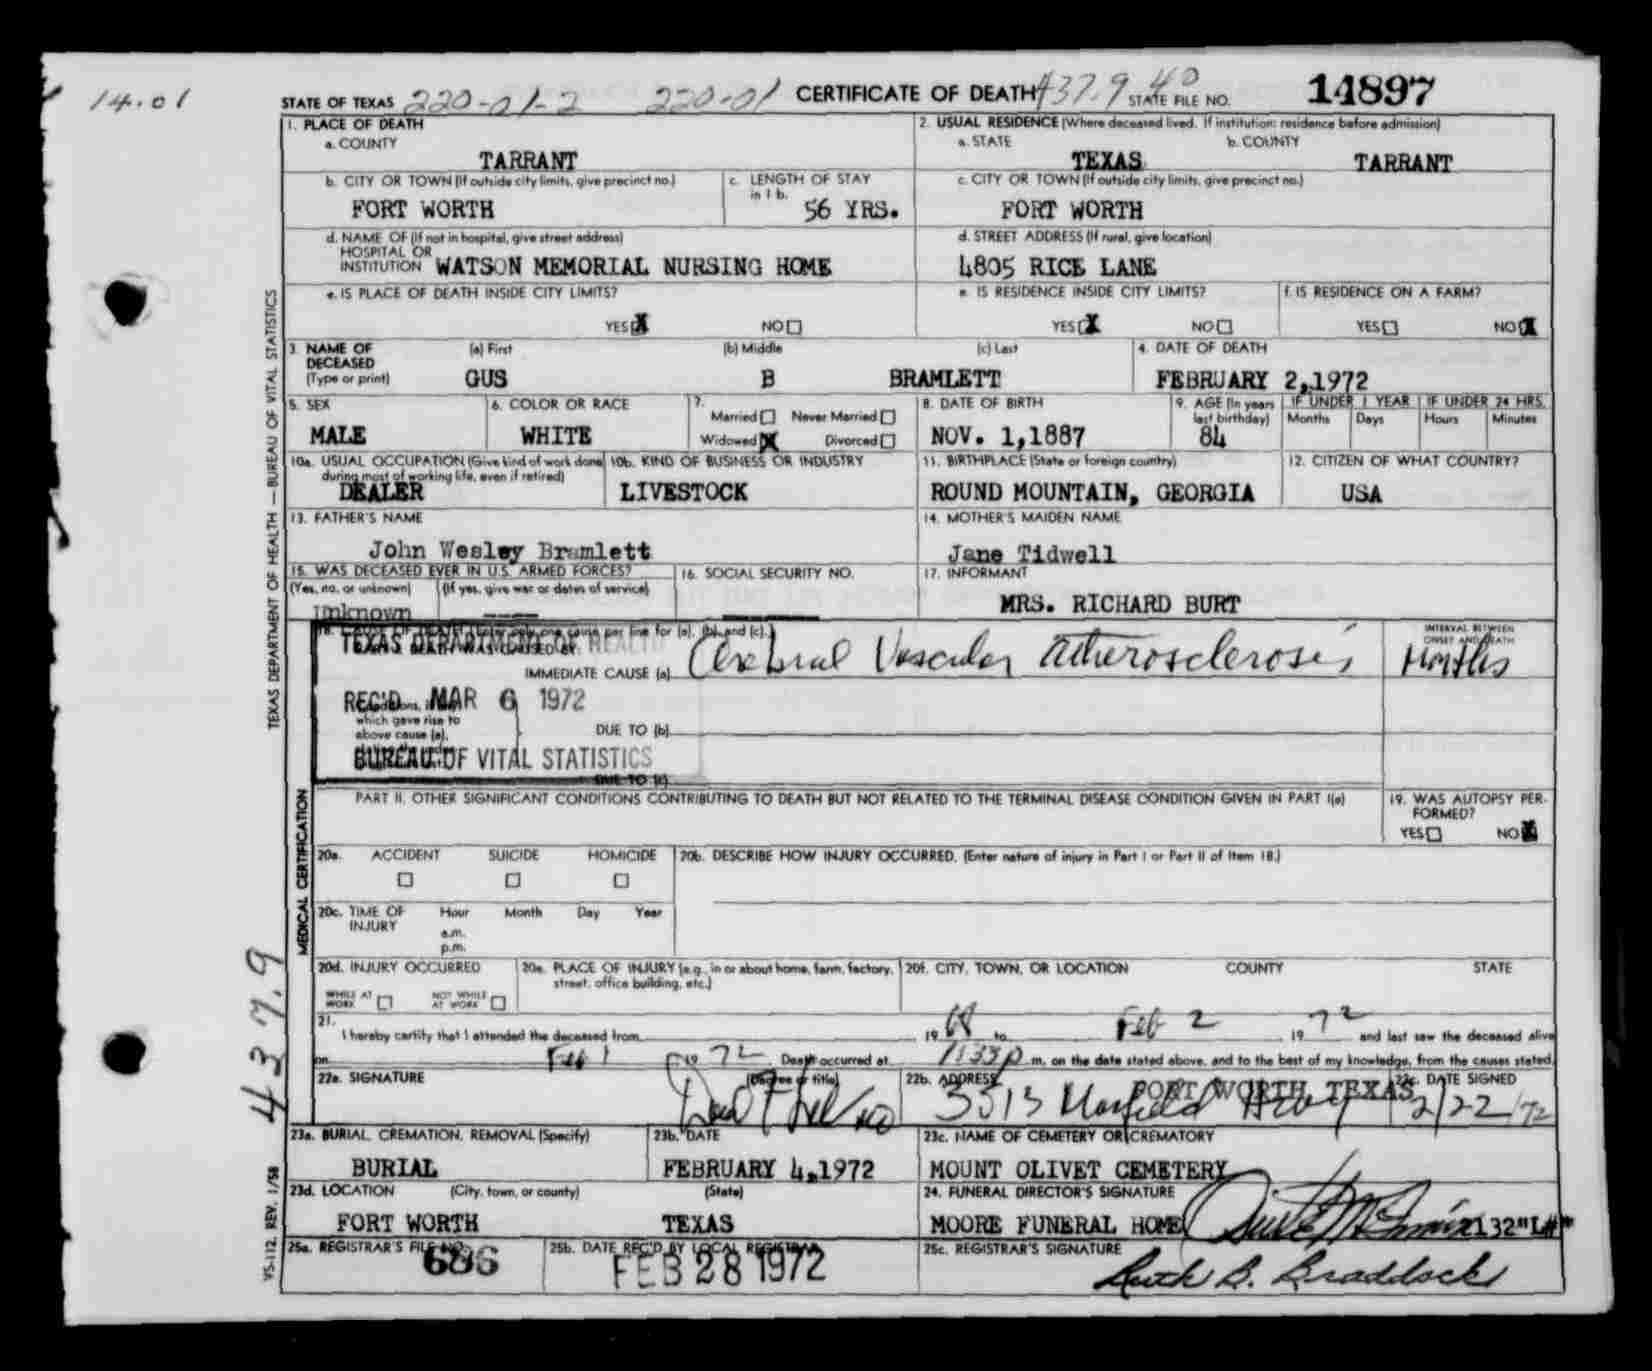 14.01
STATE OF TEXAS 220-01-2 220-01 CERTIFICATE OF DEATH 437.9 40 STATE FILE NO. 14897
1. PLACE OF DEATH
a. COUNTY
TARRANT
2. USUAL RESIDENCE (Where deceased lived. If institution: residence before admission)
a. STATE b. COUNTY
TEXAS TARRANT
b. CITY OR TOWN (If outside city limits, give precinct no.)
FORT WORTH
c. LENGTH OF STAY
in 1 b.
56 YRS.
c. CITY OR TOWN (If outside city limits, give precinct no.)
FORT WORTH
d. NAME OF (If not in hospital, give street address)
HOSPITAL OR
INSTITUTION WATSON MEMORIAL NURSING HOME
d. STREET ADDRESS (If rural, give location)
4805 RICE LANE
e. IS PLACE OF DEATH INSIDE CITY LIMITS?
YES X NO
e. IS RESIDENCE INSIDE CITY LIMITS?
YES X NO
f. IS RESIDENCE ON A FARM?
YES NO X
3. NAME OF DECEASED (Type or print)
(a) First (b) Middle (c) Last
GUS B BRAMLETT
4. DATE OF DEATH
FEBRUARY 2,1972
5. SEX
MALE
6. COLOR OR RACE
WHITE
7.
Married Never Married
Widowed X Divorced
8. DATE OF BIRTH
NOV. 1,1887
9. AGE (In years last birthday)
84
IF UNDER 1 YEAR IF UNDER 24 HRS.
Months Days Hours Minutes
10a. USUAL OCCUPATION (Give kind of work done during most of working life, even if retired)
DEALER
10b. KIND OF BUSINESS OR INDUSTRY
LIVESTOCK
11. BIRTHPLACE (State or foreign country)
ROUND MOUNTAIN, GEORGIA
12. CITIZEN OF WHAT COUNTRY?
USA
13. FATHER'S NAME
John Wesley Bramlett
14. MOTHER'S MAIDEN NAME
Jane Tidwell
15. WAS DECEASED EVER IN U.S. ARMED FORCES?
(Yes, no, or unknown) (If yes, give war or dates of service)
Unknown ---
16. SOCIAL SECURITY NO.
17. INFORMANT
MRS. RICHARD BURT
18. CAUSE OF DEATH [Enter only one cause per line for (a), (b), and (c).]
TEXAS DEPARTMENT OF HEALTH
PART I. DEATH WAS CAUSED BY:
IMMEDIATE CAUSE (a) Cerebral Vascular Atherosclerosis
INTERVAL BETWEEN ONSET AND DEATH
Months
REC'D MAR 6 1972
Conditions, if any, which gave rise to above cause (a),
DUE TO (b)
BUREAU OF VITAL STATISTICS
DUE TO (c)
PART II. OTHER SIGNIFICANT CONDITIONS CONTRIBUTING TO DEATH BUT NOT RELATED TO THE TERMINAL DISEASE CONDITION GIVEN IN PART I(a)
19. WAS AUTOPSY PERFORMED?
YES NO X
20a. ACCIDENT SUICIDE HOMICIDE
20b. DESCRIBE HOW INJURY OCCURRED. (Enter nature of injury in Part I or Part II of Item 18.)
20c. TIME OF INJURY Hour Month Day Year
a.m.
p.m.
20d. INJURY OCCURRED
WHILE AT WORK NOT WHILE AT WORK
20e. PLACE OF INJURY (e.g., in or about home, farm, factory, street, office building, etc.)
20f. CITY, TOWN, OR LOCATION COUNTY STATE
21.
I hereby certify that I attended the deceased from 19 68 to Feb 2, 19 72 and last saw the deceased alive
on Feb 1 19 72 Death occurred at 1133 p m. on the date stated above, and to the best of my knowledge, from the causes stated.
22a. SIGNATURE (Degree or title)
22b. ADDRESS
FORT WORTH, TEXAS
3313
22c. DATE SIGNED
2/22/72
23a. BURIAL, CREMATION, REMOVAL (Specify)
BURIAL
23b. DATE
FEBRUARY 4,1972
23c. NAME OF CEMETERY OR CREMATORY
MOUNT OLIVET CEMETERY
23d. LOCATION (City, town, or county) (State)
FORT WORTH TEXAS
24. FUNERAL DIRECTOR'S SIGNATURE
MOORE FUNERAL HOME 2132"L#"
25a. REGISTRAR'S FILE NO.
686
25b. DATE REC'D BY LOCAL REGISTRAR
FEB 28 1972
25c. REGISTRAR'S SIGNATURE
Ruth B. Braddock
TEXAS DEPARTMENT OF HEALTH — BUREAU OF VITAL STATISTICS
MEDICAL CERTIFICATION
437.9
VS-112, REV. 1/58